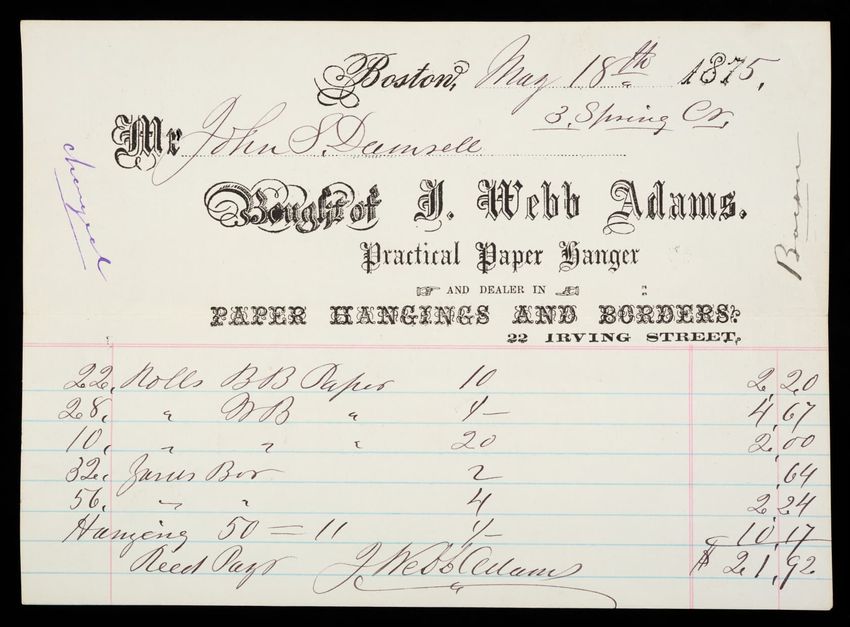 Boston, May 18th 1875.
3, Spring Ct,
Mr John S. Damrell
changed
Bought of J. Webb Adams.
Bacon
Practical Paper Hanger
AND DEALER IN
PAPER HANGINGS AND BORDERS.
22 IRVING STREET,
22, Rolls BB Paper 10 2,20
28, " WB " 4,67
10, " " " 20 2,00
32, Yards Bor 2 ,64
56, " " 4 2,24
Hanging 50 = 11 10,17
Recd Payt J. Webb Adams $ 21,92